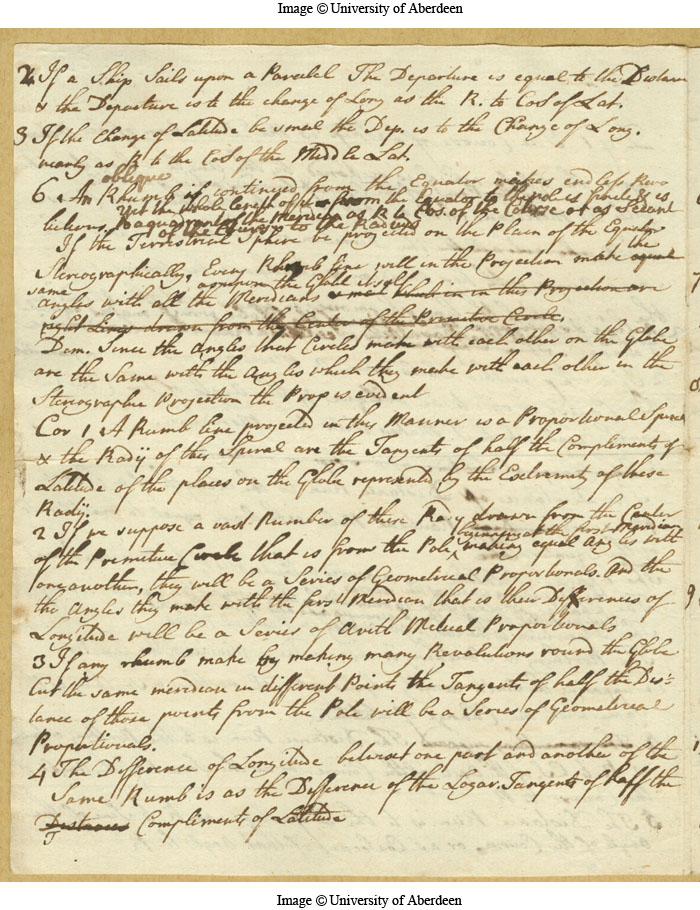 Image © University of Aberdeen
2 If a Ship Sails upon a Paralel The Departure is equal to the Distance
& the Departure is to the change of Long as the R. to CoS of Lat.
3 If the Change of Latitude be small the Dep. is to the Change of Long.
nearly as R to the CoS of the Middle Lat.
oblique
6. An Rhumb if continued from the Equator makes endless Revo
Yet the whole length of it from the Equator to the poles finite & is
lutions, to a quadrant of the Meridian as R to CoS. of the Course or as Secant
of the Course to the Radius
If the Terrestrial Sphere be projected on the Plain of the Equator
Stereographically, Every Rhumb line will in the Projection make equal the
same as upon the Globe itself
angles with all the Meridians in this Projection are
right Lines drawn from the Center of the Primitive Circle.
Dem. Since the Angles that Circles make with each other on the Globe
are the Same with the Angles which they make with each other in the
Stereographic Projection the Prop is evident
Cor 1. A Rumb line projected in this Manner is a Proportional Spiral
& the Radij of this Spiral are the Tangents of half the Complements of
Latitude of the places on the Globe represented by the Extremity of these
Radij.
2 If we suppose a vast Number of these Radij drawn from the Center
beginning at the first Meridian
of the Primitive Circle that is from the Pole making equal Angles with
one another, they will be a Series of Geometrical Proportionals. And the
the Angles they make with the first Meridian that is their Differences of
Longitude will be a Series of Arith Metical Proportionals
3 If any rhumb make by making many Revolutions round the Globe
Cut the same meridian in different Points the Tangents of half the Dis-
tance of those points from the Pole will be a Series of Geometrical
Proportionals.
4 The Difference of Longitude betwixt one part and another of the
Same Rumb is as the Difference of the Logar. Tangents of half the
Distances Compliments of Latitude
Image © University of Aberdeen